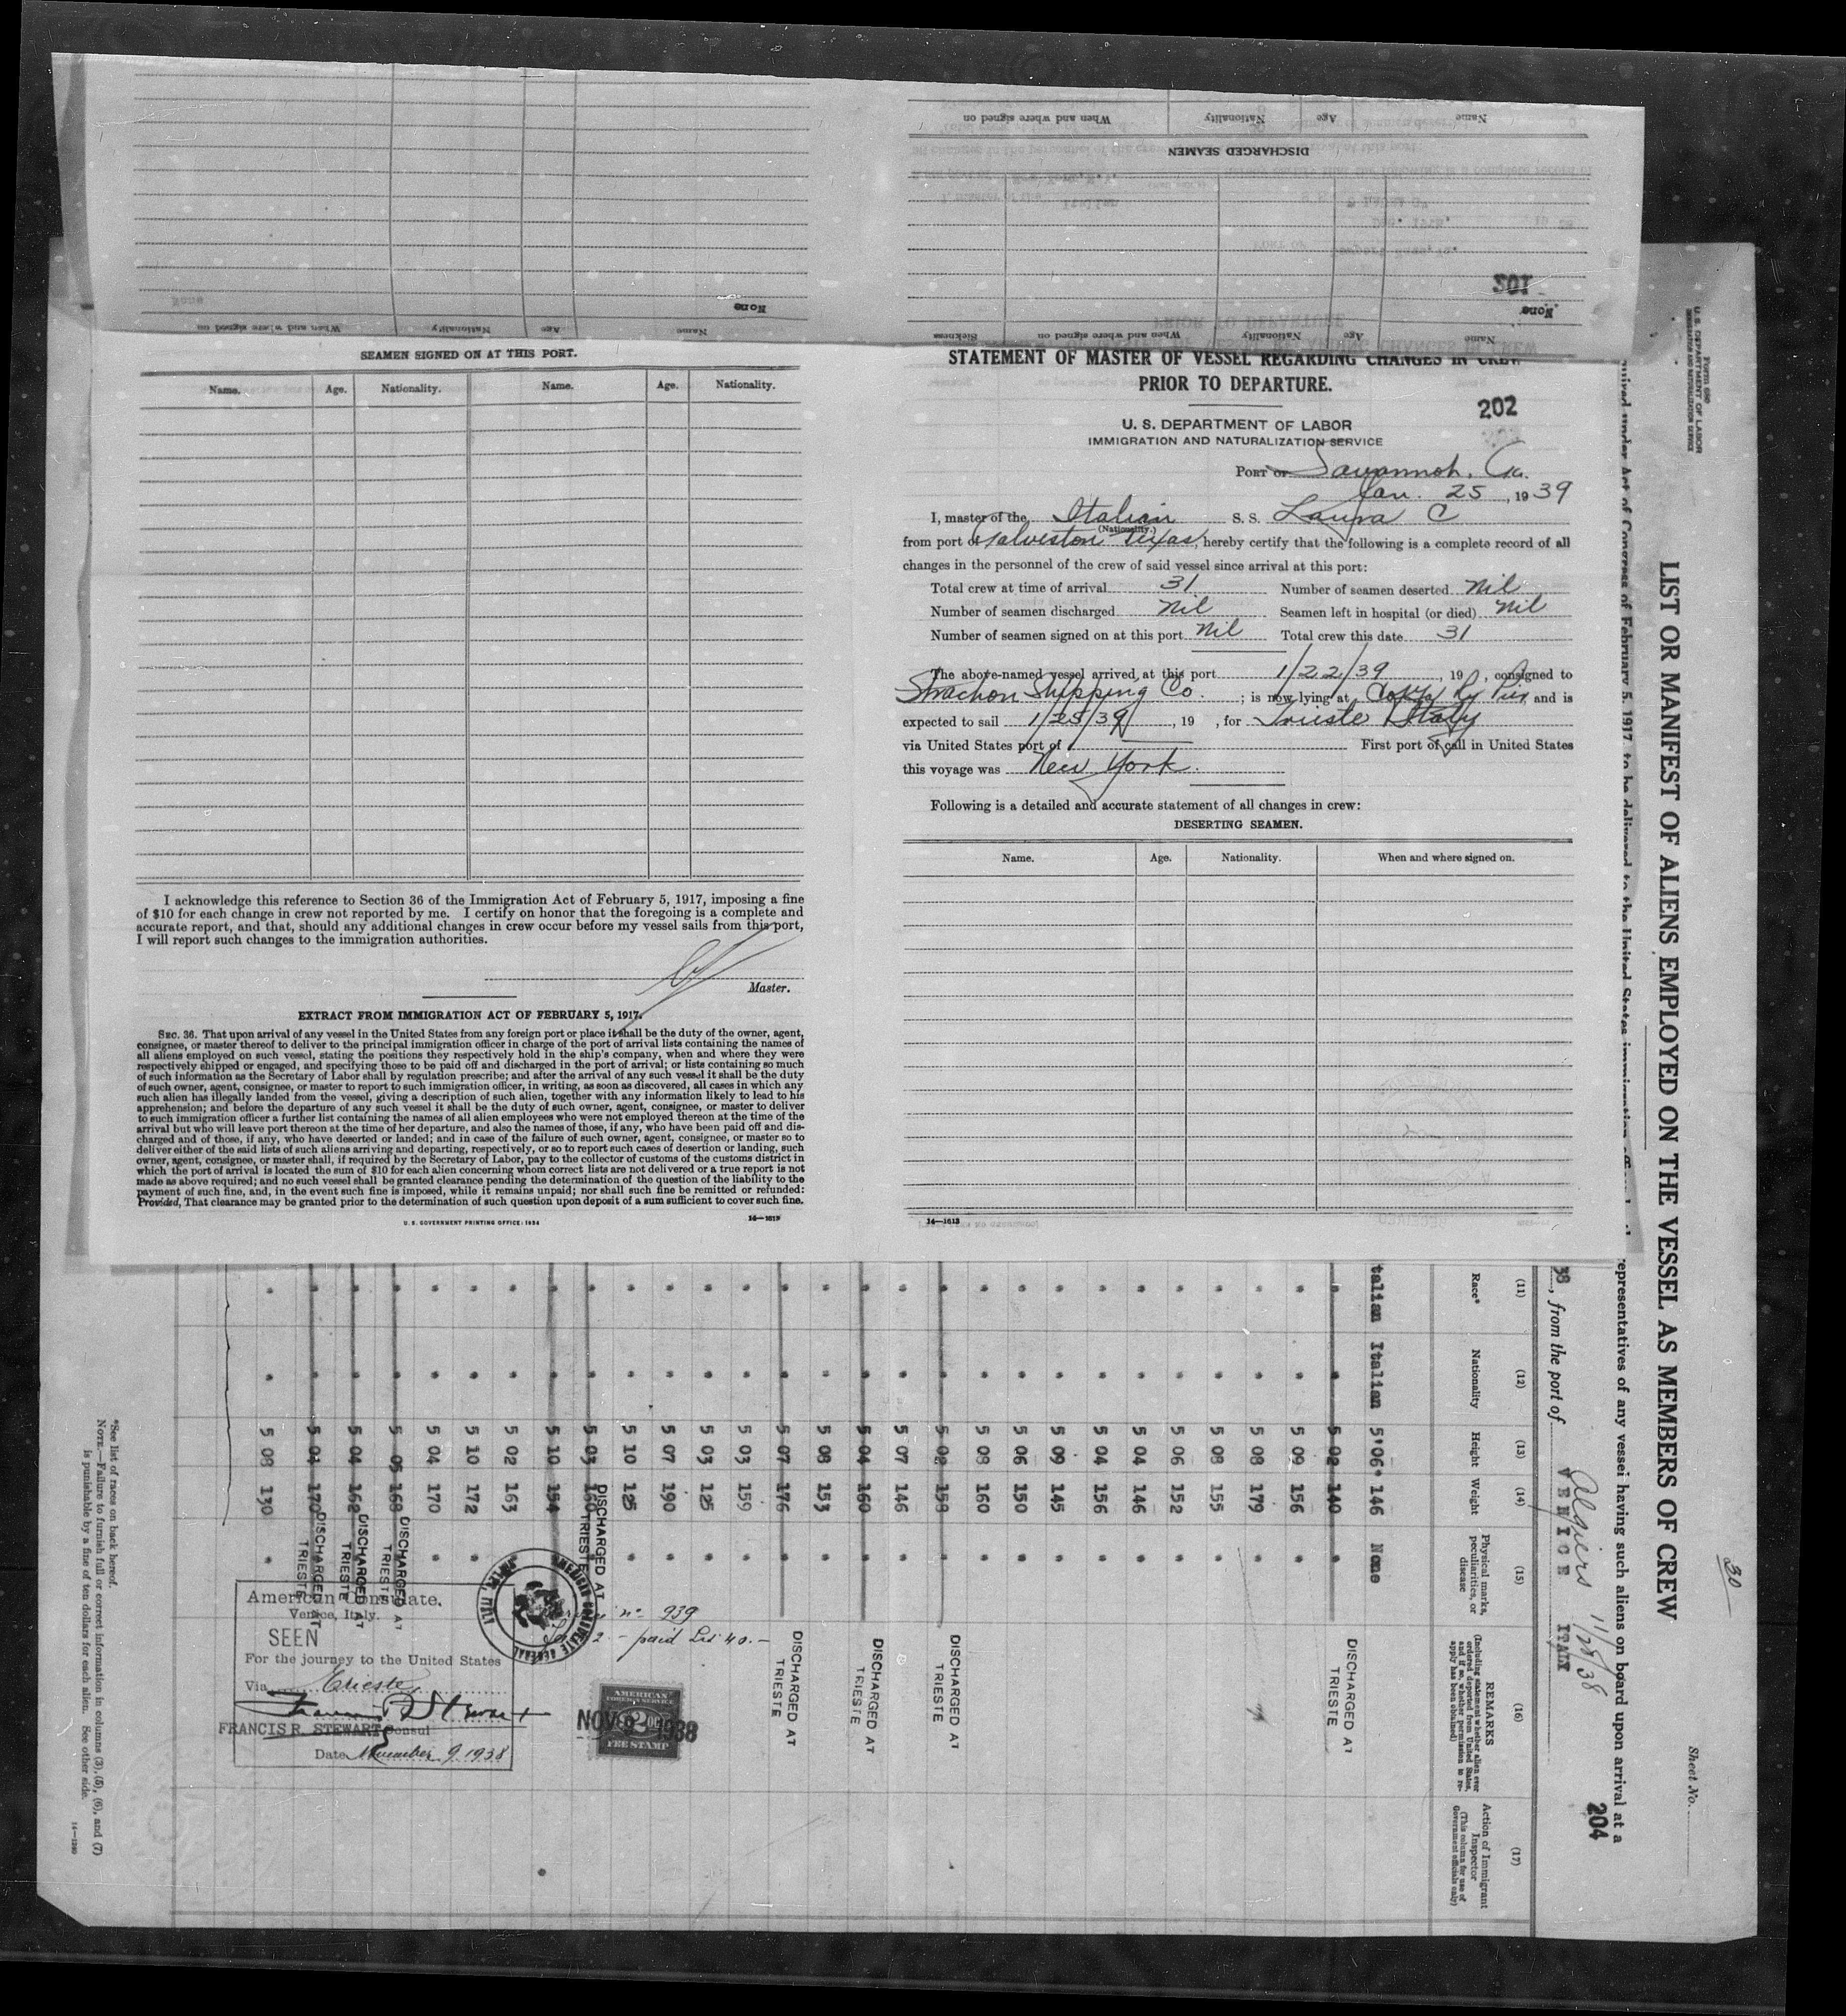 When and where signed on
Nationality
Age
Name
DISCHARGED SEAMEN
201
None
None
Name
Age
Nationality
When and where signed on
Name
Age
Nationality
When and where signed on
Sickness
SEAMEN SIGNED ON AT THIS PORT.
Name. Age. Nationality. Name. Age. Nationality.
I acknowledge this reference to Section 36 of the Immigration Act of February 5, 1917, imposing a fine
of $10 for each change in crew not reported by me. I certify on honor that the foregoing is a complete and
accurate report, and that, should any additional changes in crew occur before my vessel sails from this port,
I will report such changes to the immigration authorities.
Master.
EXTRACT FROM IMMIGRATION ACT OF FEBRUARY 5, 1917.
SEC. 36. That upon arrival of any vessel in the United States from any foreign port or place it shall be the duty of the owner, agent,
consignee, or master thereof to deliver to the principal immigration officer in charge of the port of arrival lists containing the names of
all aliens employed on such vessel, stating the positions they respectively hold in the ship's company, when and where they were
respectively shipped or engaged, and specifying those to be paid off and discharged in the port of arrival; or lists containing so much
of such information as the Secretary of Labor shall by regulation prescribe; and after the arrival of any such vessel it shall be the duty
of such owner, agent, consignee, or master to report to such immigration officer, in writing, as soon as discovered, all cases in which any
such alien has illegally landed from the vessel, giving a description of such alien, together with any information likely to lead to his
apprehension; and before the departure of any such vessel it shall be the duty of such owner, agent, consignee, or master to deliver
to such immigration officer a further list containing the names of all alien employees who were not employed thereon at the time of the
arrival but who will leave port thereon at the time of her departure, and also the names of those, if any, who have been paid off and dis-
charged and of those, if any, who have deserted or landed; and in case of the failure of such owner, agent, consignee, or master so to
deliver either of the said lists of such aliens arriving and departing, respectively, or so to report such cases of desertion or landing, such
owner, agent, consignee, or master shall, if required by the Secretary of Labor, pay to the collector of customs of the customs district in
which the port of arrival is located the sum of $10 for each alien concerning whom correct lists are not delivered or a true report is not
made as above required; and no such vessel shall be granted clearance pending the determination of the question of the liability to the
payment of such fine, and, in the event such fine is imposed, while it remains unpaid; nor shall such fine be remitted or refunded:
Provided, That clearance may be granted prior to the determination of such question upon deposit of a sum sufficient to cover such fine.
U. S. GOVERNMENT PRINTING OFFICE: 1934
14—1613
STATEMENT OF MASTER OF VESSEL REGARDING CHANGES IN CREW
PRIOR TO DEPARTURE.
202
U. S. DEPARTMENT OF LABOR
IMMIGRATION AND NATURALIZATION SERVICE
PORT OF Savannah, Ga.
Jan. 25, 1939
I, master of the Italian S. S. Laura C
(Nationality.)
from port of Galveston Texas, hereby certify that the following is a complete record of all
changes in the personnel of the crew of said vessel since arrival at this port:
Total crew at time of arrival 31 Number of seamen deserted Nil
Number of seamen discharged Nil Seamen left in hospital (or died) Nil
Number of seamen signed on at this port Nil Total crew this date 31
The above-named vessel arrived at this port 1/22/39, 19 , consigned to
Strachan Shipping Co.; is now lying at Ry Pier and is
expected to sail 1/25/39, 19 , for Trieste Italy
via United States port of First port of call in United States
this voyage was New York.
Following is a detailed and accurate statement of all changes in crew:
DESERTING SEAMEN.
Name. Age. Nationality. When and where signed on.
14—1613
Form 680
U. S. DEPARTMENT OF LABOR
IMMIGRATION AND NATURALIZATION SERVICE
LIST OR MANIFEST OF ALIENS EMPLOYED ON THE VESSEL AS MEMBERS OF CREW
30
Sheet No.
quired under Act of Congress of February 5, 1917, to be delivered to the United States immigration
representatives of any vessel having such aliens on board upon arrival at a
204
38, from the port of VENICE ITALY
Algiers 11/28/38
(11) (12) (13) (14) (15) (16) (17)
Race*
Nationality
Height
Weight
Physical marks, peculiarities, or disease
REMARKS
(Including statement whether alien ever ordered deported from United States, and if so, whether permission to re-apply has been obtained)
Action of Immigrant Inspector
(This column for use of Government officials only)
talian Italian 5'06" 146 None
" " 5 02 140 " DISCHARGED AT TRIESTE
" " 5 09 156 "
" " 5 08 179 "
" " 5 08 155 "
" " 5 06 152 "
" " 5 04 146 "
" " 5 04 156 "
" " 5 09 145 "
" " 5 06 150 "
" " 5 08 160 "
" " 5 02 158 " DISCHARGED AT TRIESTE
" " 5 07 146 "
" " 5 04 160 " DISCHARGED AT TRIESTE
" " 5 08 153 "
" " 5 07 176 " DISCHARGED AT TRIESTE
" " 5 03 159 "
" " 5 03 125 "
" " 5 07 190 "
" " 5 10 125 "
" " 5 03 160 DISCHARGED AT TRIESTE
" " 5 10 154
" " 5 02 163
" " 5 10 172 "
" " 5 04 170 "
" " 5 05 168 DISCHARGED AT TRIESTE
" " 5 04 162 DISCHARGED AT TRIESTE
" " 5 01 170 DISCHARGED AT TRIESTE
" " 5 08 130 "
American Consulate.
Venice, Italy.
SEEN
For the journey to the United States
Via Trieste
FRANCIS R. STEWART Consul
Date November 9, 1938
no 939
paid Lit 40.-
AMERICAN
FOREIGN SERVICE
FEE STAMP
NOV 9 1938
*See list of races on back hereof.
NOTE.—Failure to furnish full or correct information in columns (3), (5), (6), and (7)
is punishable by a fine of ten dollars for each alien. See other side.
14—1240